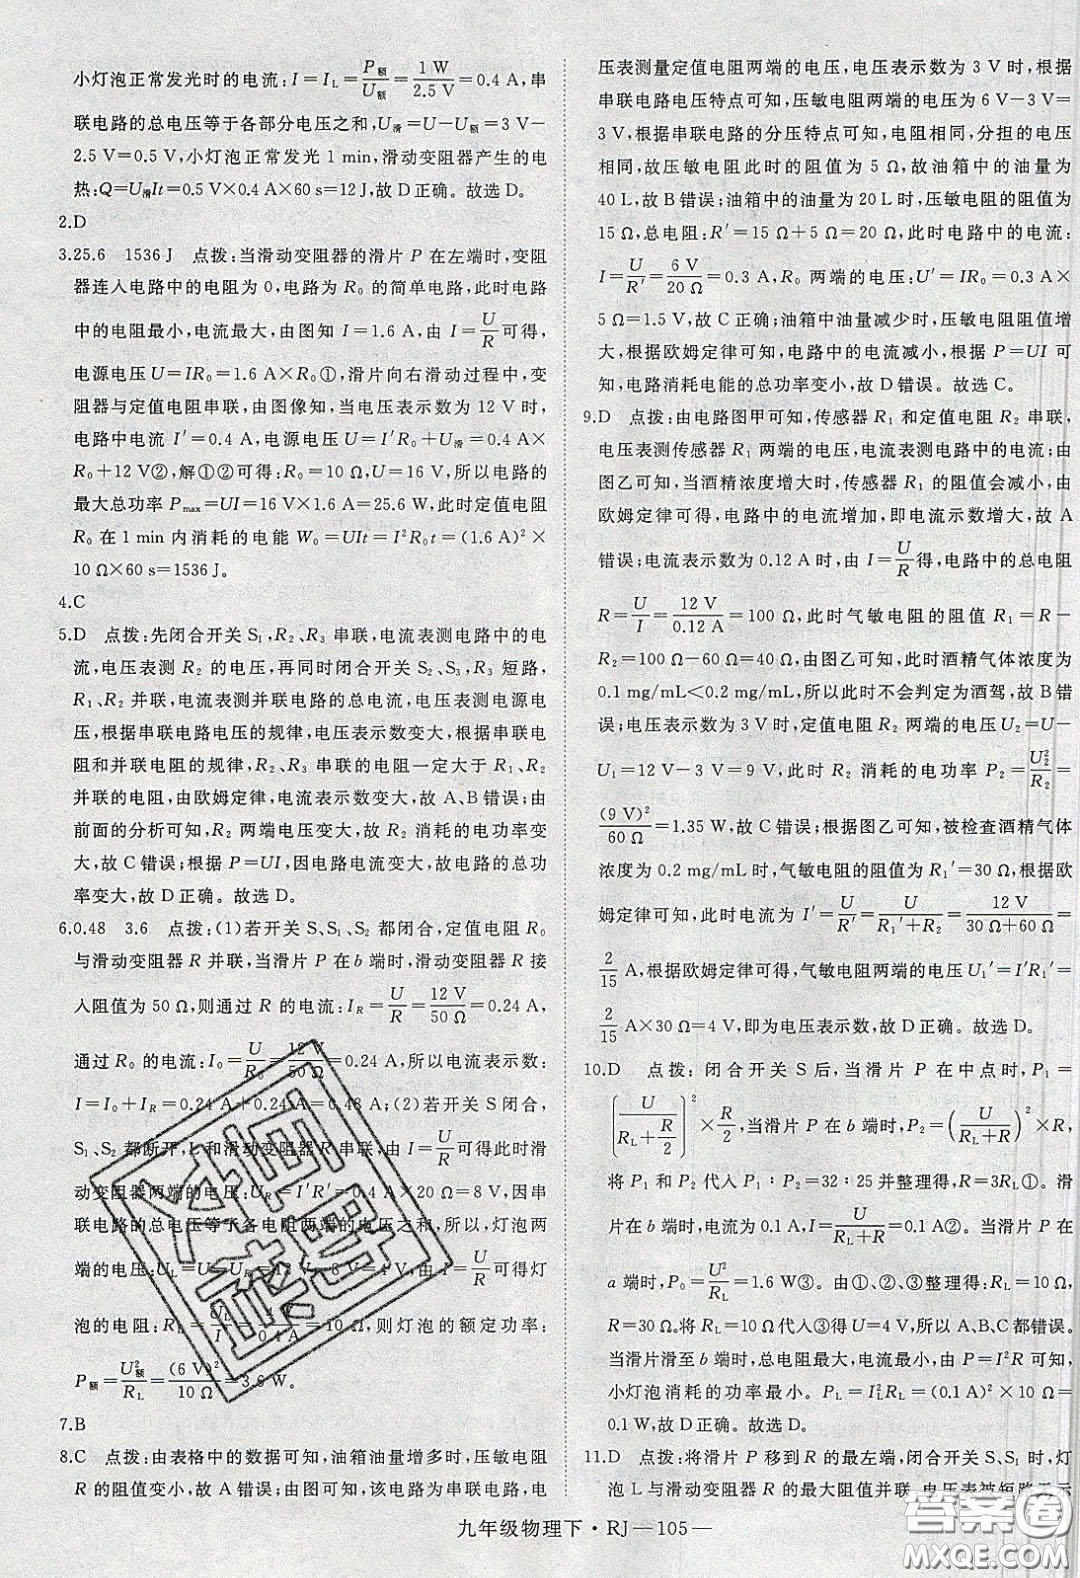 小灯泡正常发光时的电流:I=I_L=P额/U额=1 W/2.5 V=0.4 A,串
联电路的总电压等于各部分电压之和,U滑=U-U额=3 V-
2.5 V=0.5 V,小灯泡正常发光1 min,滑动变阻器产生的电
热:Q=U滑It=0.5 V×0.4 A×60 s=12 J,故D正确。故选D。
2.D
3.25.6 1536 J 点拨:当滑动变阻器的滑片P在左端时,变阻
器连入电路中的电阻为0,电路为R₀的简单电路,此时电路
中的电阻最小,电流最大,由图知I=1.6 A,由I=U/R可得,
电源电压U=IR₀=1.6 A×R₀①,滑片向右滑动过程中,变
阻器与定值电阻串联,由图像知,当电压表示数为12 V时,
电路中电流I′=0.4 A,电源电压U=I′R₀+U滑=0.4 A×
R₀+12 V②,解①②可得:R₀=10 Ω,U=16 V,所以电路的
最大总功率Pmax=UI=16 V×1.6 A=25.6 W,此时定值电阻
R₀在1 min内消耗的电能W₀=UIt=I²R₀t=(1.6 A)²×
10 Ω×60 s=1536 J。
4.C
5.D 点拨:先闭合开关S₁,R₂、R₃串联,电流表测电路中的电
流,电压表测R₂的电压,再同时闭合开关S₂、S₃,R₃短路,
R₁、R₂并联,电流表测并联电路的总电流,电压表测电源电
压,根据串联电路电压的规律,电压表示数变大,根据串联电
阻和并联电阻的规律,R₂、R₃串联的电阻一定大于R₁、R₂
并联的电阻,由欧姆定律,电流表示数变大,故A、B错误;由
前面的分析可知,R₂两端电压变大,故R₂消耗的电功率变
大,故C错误;根据P=UI,因电路电流变大,故电路的总功
率变大,故D正确。故选D。
6.0.48 3.6 点拨:(1)若开关S、S₁、S₂都闭合,定值电阻R₀
与滑动变阻器R并联,当滑片P在b端时,滑动变阻器R接
入阻值为50 Ω,则通过R的电流:I_R=U/R=12 V/50 Ω=0.24 A,
通过R₀的电流:I₀=U/R₀=12 V/50 Ω=0.24 A,所以电流表示数:
I=I₀+I_R=0.24 A+0.24 A=0.48 A;(2)若开关S闭合,
S₁、S₂都断开,L和滑动变阻器R串联,由I=U/R可得此时滑
动变阻器两端的电压:U_R=I′R′=0.4 A×20 Ω=8 V,因串
联电路的总电压等于各电阻两端的电压之和,所以,灯泡两
端的电压:U_L=U-U_R=12 V-8 V=4 V,由I=U/R可得灯
泡的电阻:R_L=U_L/I=4 V/0.4 A=10 Ω,则灯泡的额定功率:
P额=U额²/R_L=(6 V)²/10 Ω=3.6 W。
7.B
8.C 点拨:由表格中的数据可知,油箱油量增多时,压敏电阻
R的阻值变小,故A错误;由图可知,该电路为串联电路,电
压表测量定值电阻两端的电压,电压表示数为3 V时,根据
串联电路电压特点可知,压敏电阻两端的电压为6 V-3 V=
3 V,根据串联电路的分压特点可知,电阻相同,分担的电压
相同,故压敏电阻此时的阻值为5 Ω,故油箱中的油量为
40 L,故B错误;油箱中的油量为20 L时,压敏电阻的阻值为
15 Ω,总电阻:R′=15 Ω+5 Ω=20 Ω,此时电路中的电流:
I=U/R′=6 V/20 Ω=0.3 A,R₀两端的电压:U′=IR₀=0.3 A×
5 Ω=1.5 V,故C正确;油箱中油量减少时,压敏电阻阻值增
大,根据欧姆定律可知,电路中的电流减小,根据P=UI可
知,电路消耗电能的总功率变小,故D错误。故选C。
9.D 点拨:由电路图甲可知,传感器R₁和定值电阻R₂串联,
电压表测传感器R₁两端的电压,电流表测电路中的电流;由
图乙可知,当酒精浓度增大时,传感器R₁的阻值会减小,由
欧姆定律可得,电路中的电流增加,即电流表示数增大,故A
错误;电流表示数为0.12 A时,由I=U/R得,电路中的总电阻
R=U/I=12 V/0.12 A=100 Ω,此时气敏电阻的阻值R₁=R-
R₂=100 Ω-60 Ω=40 Ω,由图乙可知,此时酒精气体浓度为
0.1 mg/mL<0.2 mg/mL,所以此时不会判定为酒驾,故B错
误;电压表示数为3 V时,定值电阻R₂两端的电压U₂=U-
U₁=12 V-3 V=9 V,此时R₂消耗的电功率P₂=U₂²/R₂=
(9 V)²/60 Ω=1.35 W,故C错误;根据图乙可知,被检查酒精气体
浓度为0.2 mg/mL时,气敏电阻的阻值为R₁′=30 Ω,根据欧
姆定律可得,此时电流为I′=U/R′=U/(R₁′+R₂)=12 V/(30 Ω+60 Ω)=
2/15 A,根据欧姆定律可得,气敏电阻两端的电压U₁′=I′R₁′=
2/15 A×30 Ω=4 V,即为电压表示数,故D正确。故选D。
10.D 点拨:闭合开关S后,当滑片P在中点时,P₁=
(U/(R_L+R/2))²×R/2,当滑片P在b端时,P₂=(U/(R_L+R))²×R,
将P₁和P₂代入P₁∶P₂=32∶25并整理得,R=3R_L①。滑
片在b端时,电流为0.1 A,I=U/(R_L+R)=0.1 A②。当滑片P在
a端时,P₀=U²/R_L=1.6 W③。由①、②、③整理得:R_L=10 Ω,
R=30 Ω。将R_L=10 Ω代入③得U=4 V,所以A、B、C都错误。
当滑片滑至b端时,总电阻最大,电流最小,由P=I²R可知,
小灯泡消耗的功率最小。P_L=I_L²R_L=(0.1 A)²×10 Ω=
0.1 W,故D正确。故选D。
11.D 点拨:将滑片P移到R的最左端,闭合开关S、S₁时,灯
泡L与滑动变阻器R的最大阻值并联,电压表被短路无示
九年级物理下·RJ—105—
答案圈
MXQE.COM